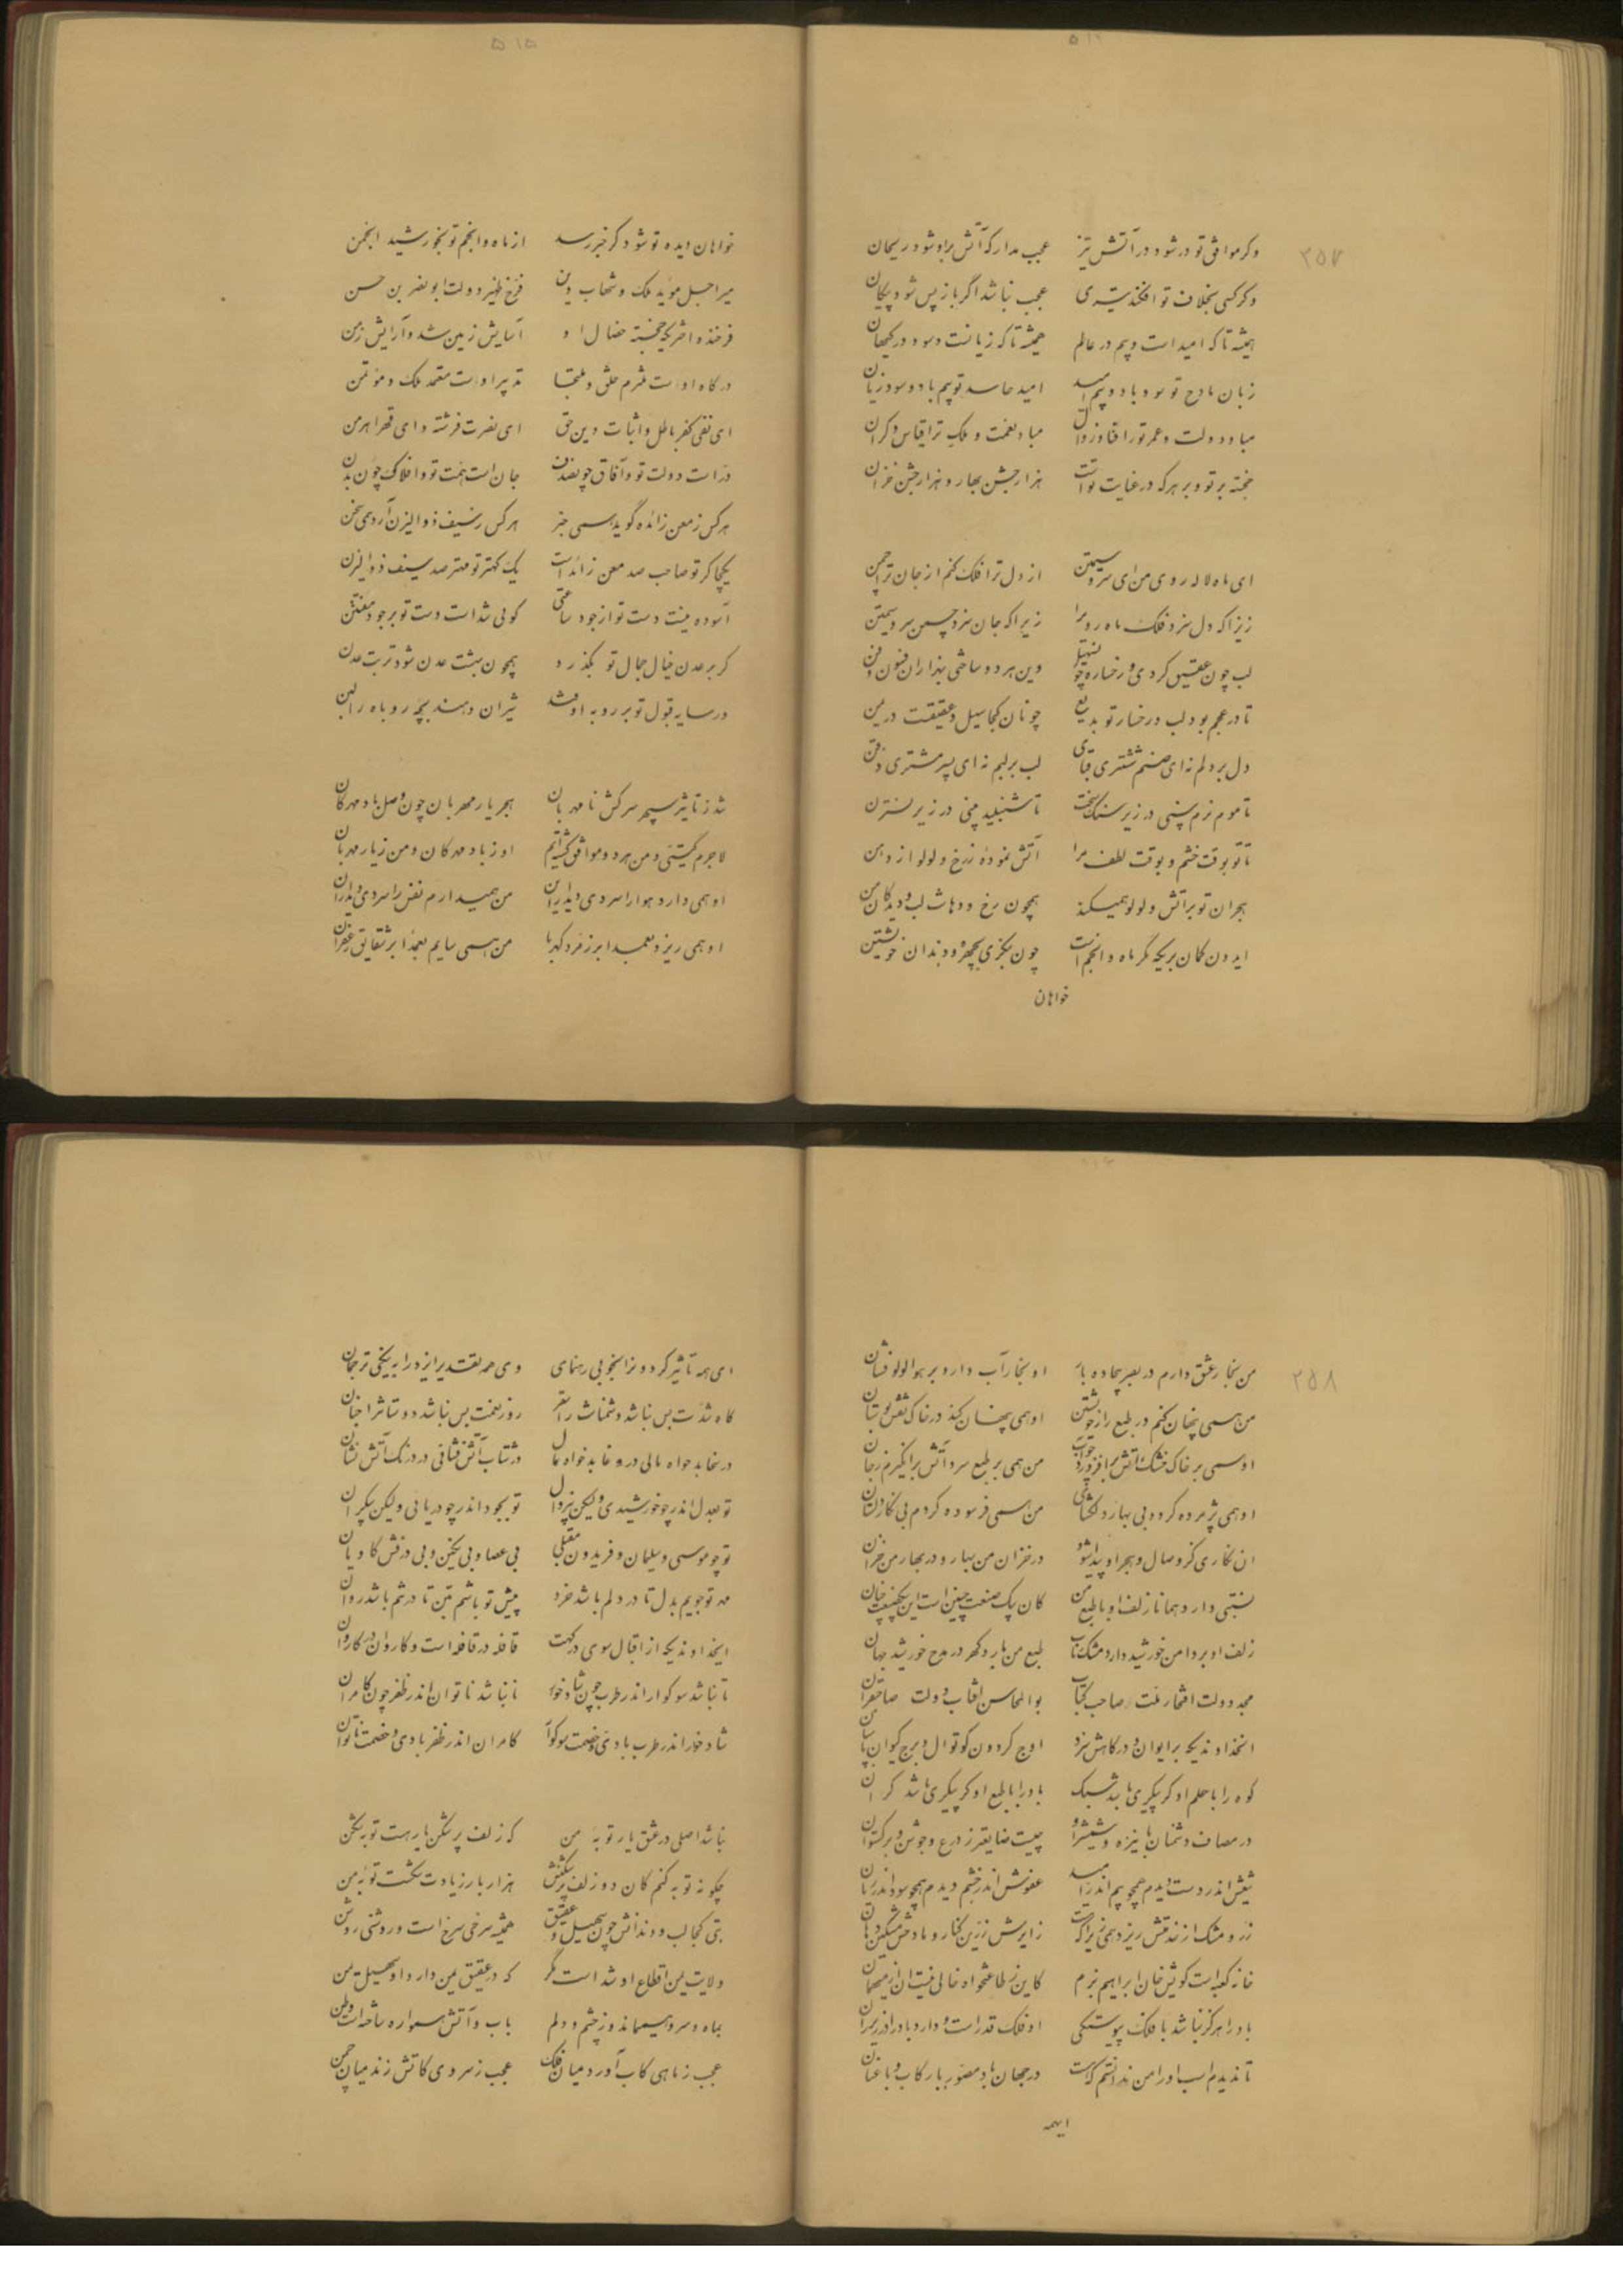 ۲۵۷
وکر موافق تو در شود در آتش تیز عجب مدار که آتش براو شود ریحان
وکر کسی بخلاف تو افکند تیری عجب نباشد اگر باز پس شود پیکان
همیشه تا که امید است و بیم در عالم همیشه تا که زیانست و سود در کیهان
زبان مادح تو سود باد و بیم امید امید حاسد تو بیم باد و سود زیان
مباد دولت و عمر تو را فنا و زوال مباد نعمت و ملک ترا قیاس و کران
خجسته بر تو و بر هر که در عنایت تو است هزار جشن بهار و هزار جشن خزان
ای ماه لاله روی من ای سرو سیمتن از دل ترا فلک کنم از جان ترا چمن
زیرا که دل سزد فلک ماه رو برا زیرا که جان سزد چمن سرو سیمتن
لب چون عقیق کردی و رخساره چو سهیل وین هر دو ساختی بهزاران فسون و فن
تا در عجم بود لب و رخسار تو بدیع چونان کجا سهیل و عقیقست در یمن
دل بر دلم نه ای صنم ششتری قبای لب بر لبم نه ای پسر مشتری ذقن
تا موم نرم بینی در زیر سنک سخت تا شنبلید بینی در زیر نسترن
تا تو بوقت خشم و بوقت لطف مرا آتش نموده ز رخ و لولو از دهن
هجران تو بر آتش و لولو همیکند همچون رخ و دهانت لب و دیدکان من
ایدون کمان بریکه مکر ماه و انجم است چون بنکری بچهر و دندان خویشتن
خواهان
خواهان دیده تو شود کر خبر رسد از ماه و انجم تو بخورشید انجمن
میر اجل مؤید ملک و شهاب دین فرخ ظهیر دولت ابو نصر بن حسن
فرخنده اختریکه خجسته خصال او آسایش زمین شد و آرایش زمن
درکاه اوست ملزم خلق و ملتجا تدبیر اوست معتمد ملک و مؤتمن
ای نفی کفر باطل و اثبات دین حق ای نصرت فرشته و ای قهر اهرمن
ذر است دولت تو و آفاق چو بدن جان است همت تو و افلاک چون بدن
هر کس ز معن زائده کوید همی خبر هر کس ز سیف ذوالیزن آرد همی سخن
یکجا کر تو صاحب صد معن زائد است یک کهتر تو مهتر صد سیف ذوالیزن
آسوده نیست دست تو از جود ساعتی کوئی شد است دست تو بر جود مفتتن
کر بر عدن خیال جمال تو بکذرد همچون بهشت عدن شود تربت عدن
در سایه قبول تو بر روبه اوفتد شیران دهند بچه روباه را لبن
شد ز تاثیر سپهر سرکش نامهربان هجر یار مهربان چون وصل باد مهرکان
لاجرم کیتی و من هر دو موافق کشته‌ایم او ز باد مهرکان و من ز یار مهربان
او همی دارد هوا را سرد دی و پدرام من همیدارم نفس را سرد دی
او همی ریزد بعمدا بر زمرد کهربا من همی سایم بعمدا بر شقایق زعفران
۲۵۸
من بخار عشق دارم در بصر بیجاده بار او بخار آب دارد بر هوا لولو فشان
من همی پنهان کنم در طبع راز خویشتن او همی پنهان کند در خاک نقش بوستان
او همی بر خاک خشک آتش برافروزد من همی بر طبع سرد آتش برانکیزم ز جان
او همی پژمرده کردد بی بهار دلکشای من همی فرسوده کردم بی نکار دلستان
ان نکاری کز وصال و هجر او پیدا شود در خزان من بهار و در بهار من خزان
نسبتی دارد همانا زلف او با طبع من کان یک صنعت چنین است این یک صنعت چنان
زلف او بر دامن خورشید دارد مشک ناب طبع من بارد کهر در مدح خورشید جهان
مجد دولت افتخار ملت صاحب کتاب بوالمحاسن آفتاب دولت صاحبقران
انخداوندیکه بر ایوان و درکاهش سزد اوج کردون کوتوال و برج کیوان پاسبان
کوه را با حلم او کر پیکری باشد سبک باد را با طبع او کر پیکری باشد کران
در مصاف دشمنان با نیزه و شمشیر او چیست ضایعتر ز درع و جوشن و برکستوان
تیغش اندر دست دیدم همچو بیم اندر امید عفوش اندر خشم دیدم همچو سود اندر زیان
زر و مشک از خدمتش ریزد همی زیرا که هست زایرش زرین کنار و مادحش مشکین دهان
خانه کعبه است کوئی خان ابراهیم بزم کاین ز طاعتخواه خالی نیست ان از میهمان
باد را هرکز نباشد با فلک پیوستکی او فلک قدر است و دارد باد را در زیر ران
تا ندیدم اسب او را من ندانستم که هست در جهان باد مصور با رکاب و با عنان
ایهمه
ای همه تاثیر کردون را بخوبی رهنمای وی همه تقدیر ایزد را به نیکی ترجمان
کاه شدت بس نباشد دشمنانت را سقر روز نعمت بس نباشد دوستانت را جنان
در سخا بدخواه مالی در وغا بدخواه مال در شتاب آتش فشانی در درنک آتش نشان
تو بعدل اندر چو خورشیدی ولیکن بیزوال تو بجود اندر چو دریائی ولیکن بیکران
تو چو موسی و سلیمان و فریدون مقبلی بی عصا و بی نکین و بی درفش کاویان
مهر تو جویم بدل تا در دلم باشد خرد پیش تو باشم بتن تا در تنم باشد روان
ایخداوندیکه از اقبال سوی درکهت قافله در قافله است و کاروان در کاروان
تا نباشد سوکوار اندر طرب چون شادخوار تا نباشد ناتوان اندر ظفر چون کامران
شاد خوار اندر طرب بادی و خصمت سوکوار کامران اندر ظفر بادی و خصمت ناتوان
نباشد اصلی در عشق یار توبه من که زلف پر شکن یار هست توبه شکن
چکونه توبه کنم کان دو زلف پر شکنش هزار بار زیادت شکست توبه من
بتی کجا لب و دندانش چون سهیل و عقیق همیشه سرخی سرخ است و روشنی روشن
ولایت یمن اقطاع او شد است مکر که در عقیق یمن دارد و سهیل یمن
بماه و سرو همیماند و ز چشم و دلم باب و آتش همواره ساخته است وطن
عجب ز ماهی کاب آورد میان فلک عجب ز سروی کاتش زند میان چمن